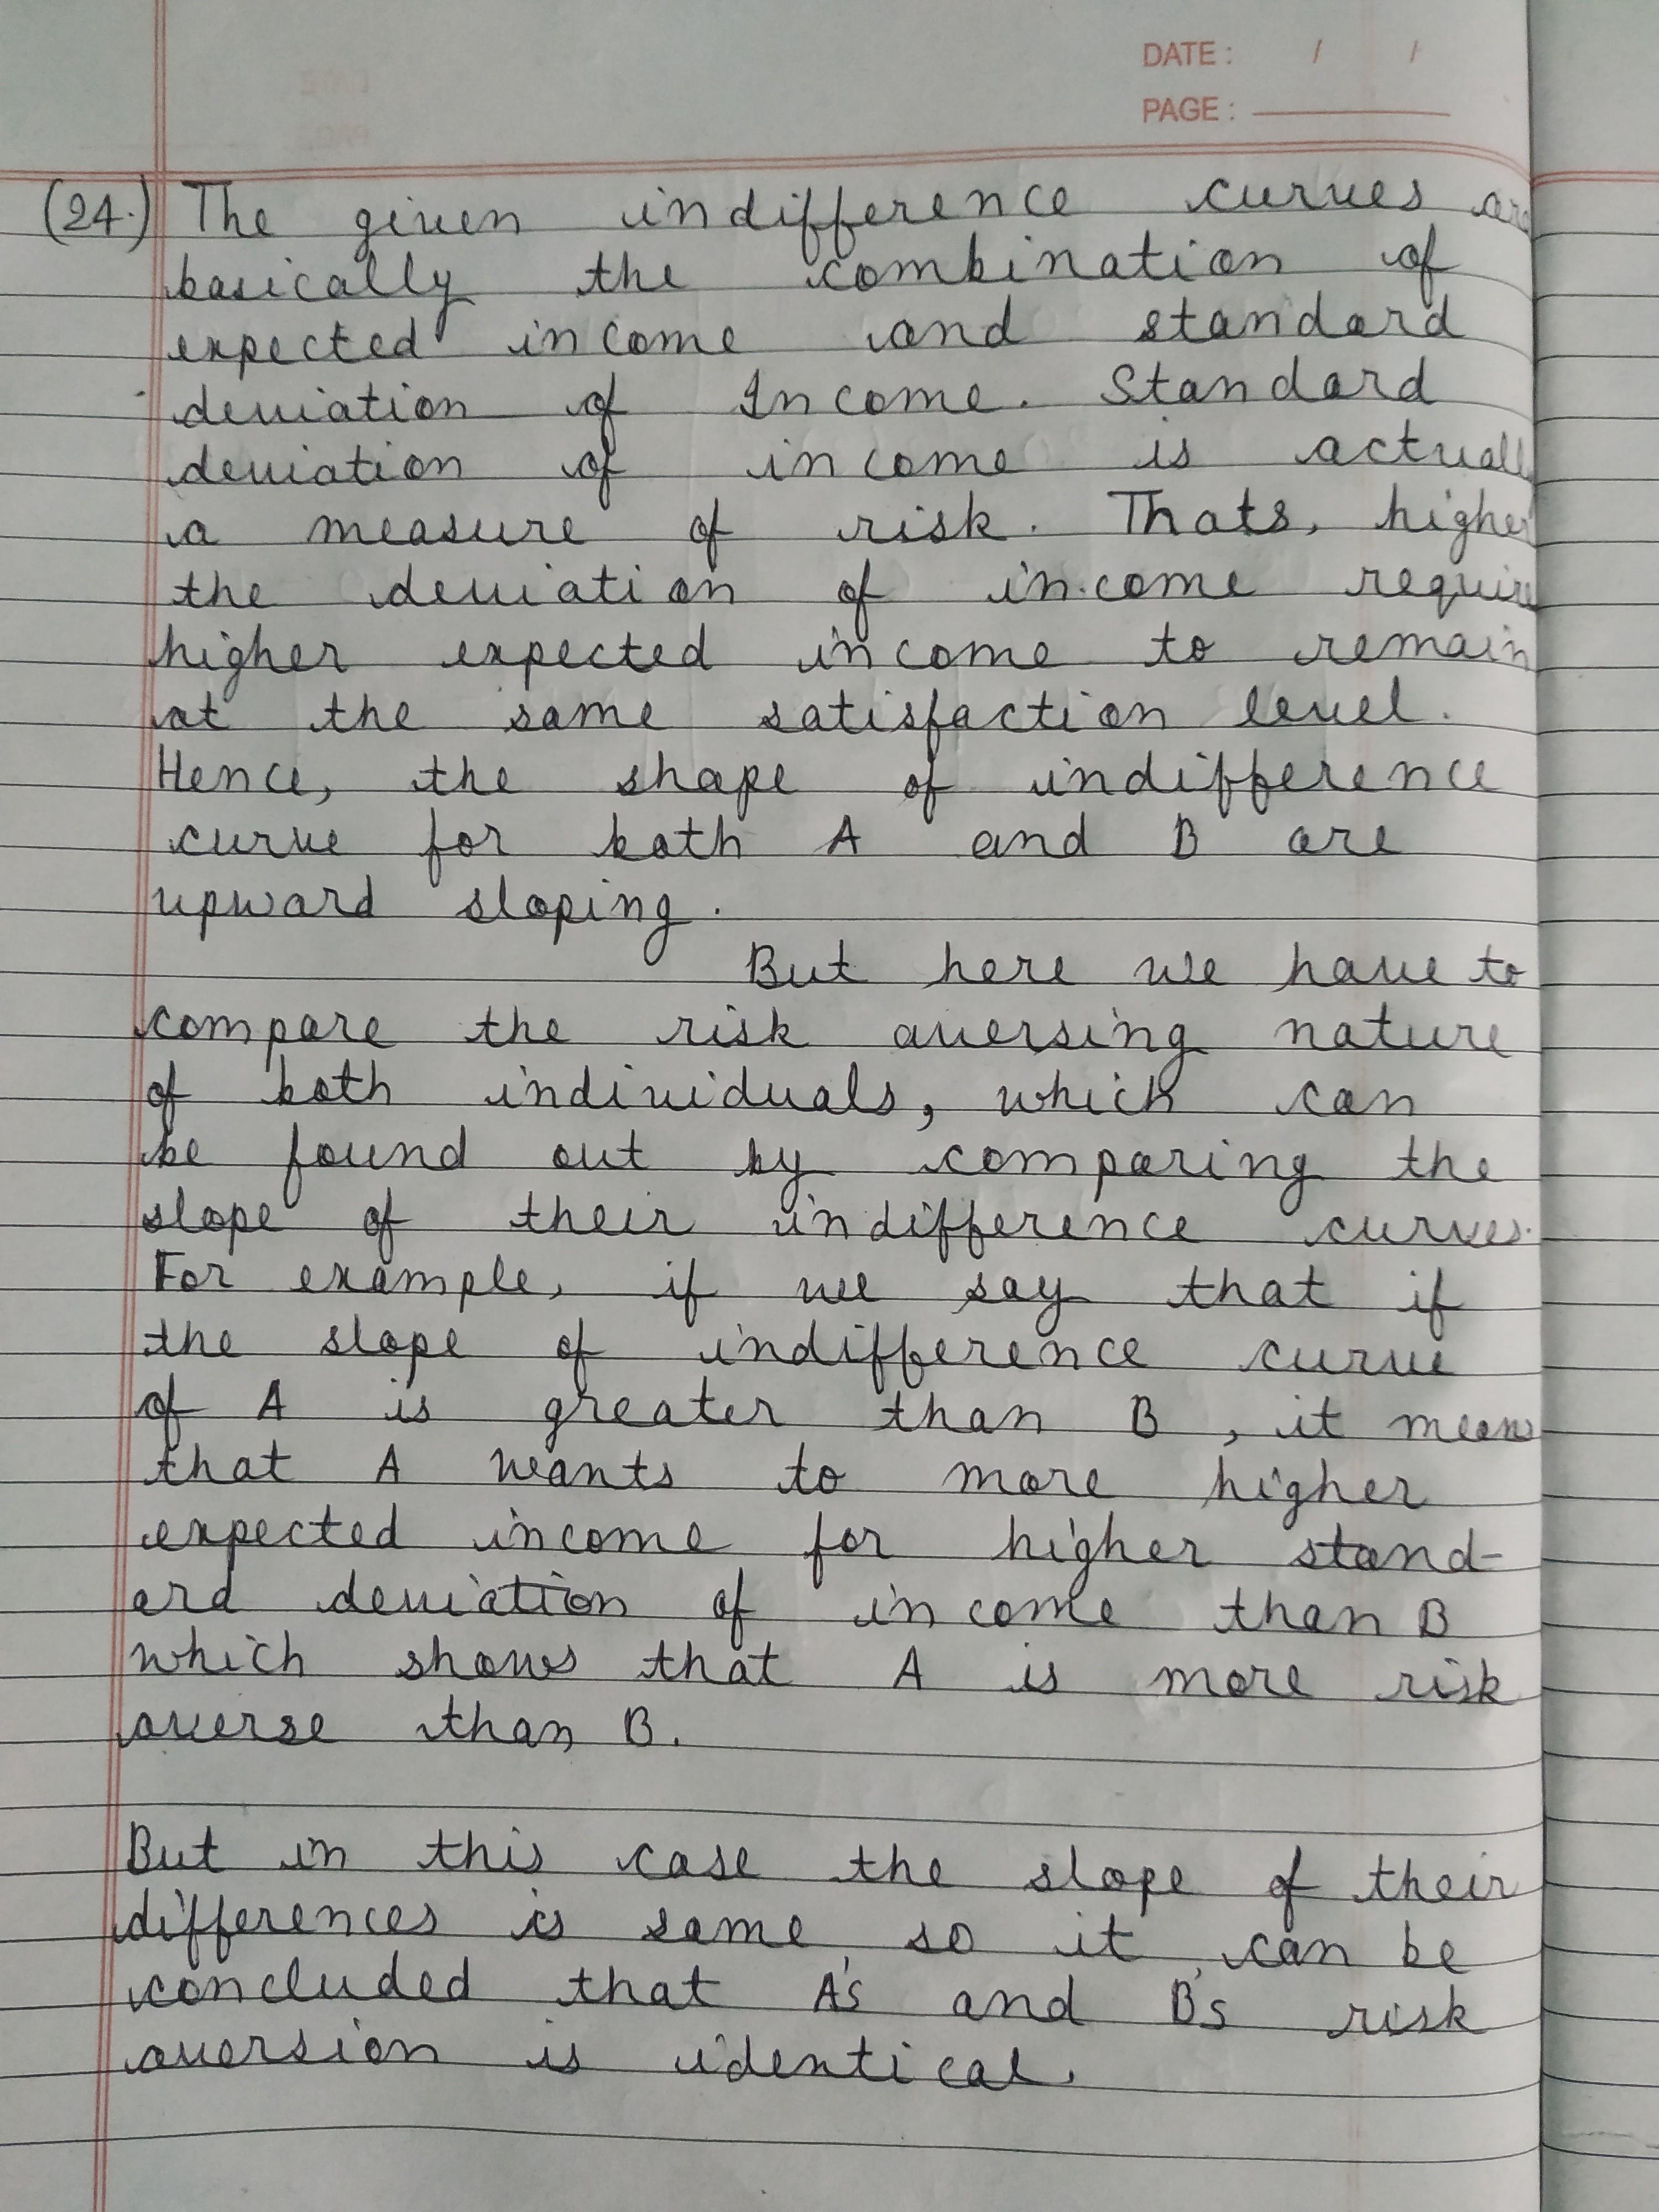 DATE : / /
PAGE :
(24.) The given indifference curves are
basically the combination of
expected income and standard
deviation of Income. Standard
deviation of income is actuall
a measure of risk. Thats, higher
the deviation of income require
higher expected income to remain
at the same satisfaction level.
Hence, the shape of indifference
curve for both A and B are
upward sloping.
But here we have to
compare the risk aversing nature
of both individuals, which can
be found out by comparing the
slope of their indifference curves.
For example, if we say that if
the slope of indifference curve
of A is greater than B, it means
that A wants to more higher
expected income for higher stand-
ard deviation of income than B
which shows that A is more risk
averse than B.
But in this case the slope of their
differences is same, so it can be
concluded that A's and B's risk
aversion is identical.